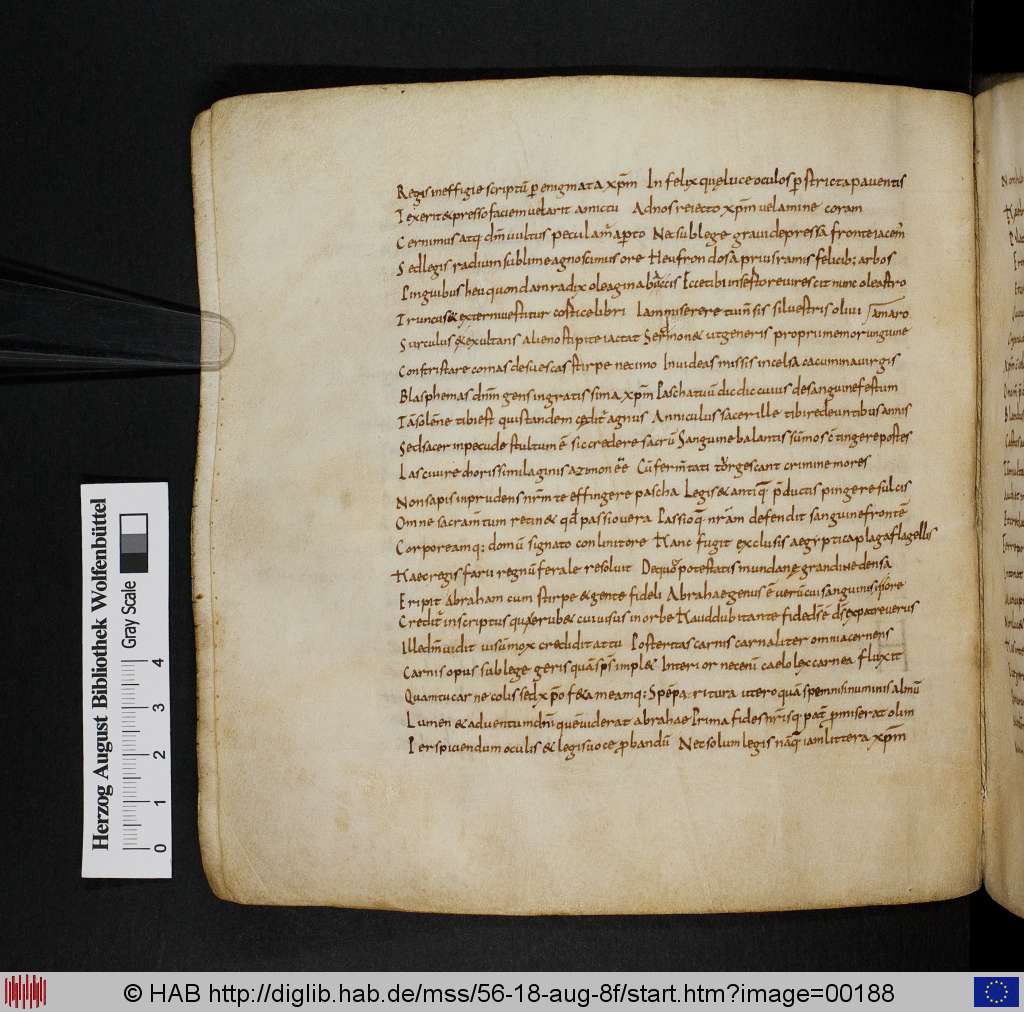 Regis in effigie scriptū p enigmata xpm̄ In felix que luce oculos pstricta paventis
Texerit & presso faciem velarit amictu Ad nos reiecto xpm̄ velamine coram
Cernimus atq; dm̄ vultu speculamur aperto Nec sub lege gravi depressa fronte iacemꝰ
Sed legis radium sublime agnoscimus ore Heu frondosa prius ramis felicib; arbos
Pinguibus heu quondam radix oleagina baccis Ecce tibi infesto revirescit nunc oleastro
Truncus & externi vestitur cortice libri Iam miserere tui non sis silvestris olivi amaro
Surculus & exultans alieno stipite iactat Se mon& ut generis proprii memor inguine
Contristare comas desuescas stirpe nec imo Invideas missis in celsa cacumina virgis
Blasphemas dnm̄ gens ingratissima xpm̄ Paschatuū dic dic cuius de sanguine festum
Tā solēne tibi est quis tandem ceditᷣ agnus Anniculus sacer ille tibi redeuntibus annis
Sed sacer in pecude stultum ē sic credere sacrū Sanguine balantis summos contingere postes
Lascivire choris similaginis azimon esse Cū fermtati turgescant crimine mores
Non sapis inprudens nrm te effingere pascha Legis & antiq̄ pductis pingere sulcis
Omne sacramtum retin& qd passio vera Passio q̄ nram defendit sanguine frontē
Corporeamq; domū signato conlinit ore Hanc fugit exclusis aegyptica plaga flagellis
Haec regis farii regnū ferale resolvit Deque potestatis mundane grandine densa
Eripit abraham cum stirpe & gente fideli Abrahae genus ē verū cui sanguinis in ore
Creditᷣ inscriptus qua erube& cui visus in orbe Haud dubitante fide ds̄ ē ds̄ ex patre verus
Ille dm̄ vidit visū mox credidit at tu Posteritas carnis carnaliter omnia cernens
Carnis opus sub lege geris quā sps̄ impl& Interior necenī caelo lex carnea fluxit
Quam tu carne colis sed xpo f&a meamq; Spē paritura utero quā spem nisi numinis almi
Lumen & adventum dnī quē viderat abrahae Prima fides nrisq; patrᷣ pmiserat olim
Perspiciendum oculis & legis voce pbandū Nec solum legis nāq̄ iam littera xpm̄
Herzog August Bibliothek Wolfenbüttel
Gray Scale
0 1 2 3 4
© HAB http://diglib.hab.de/mss/56-18-aug-8f/start.htm?image=00188